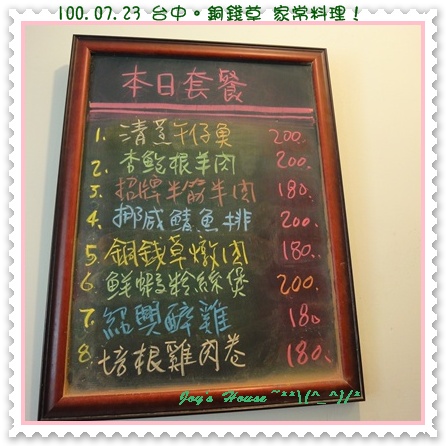 100.07.23 台中。銅錢草 家常料理！
本日套餐
1. 清蒸午仔魚 200.
2. 杏鮑根羊肉 200.
3. 招牌半筋半肉 180.
4. 挪威鯖魚排 200.
5. 銅錢草燉肉 180.
6. 鮮蝦粉絲煲 200.
7. 紹興醉雞 180
8. 培根雞肉卷 180.
Joy's House ~**\(^_^)/*